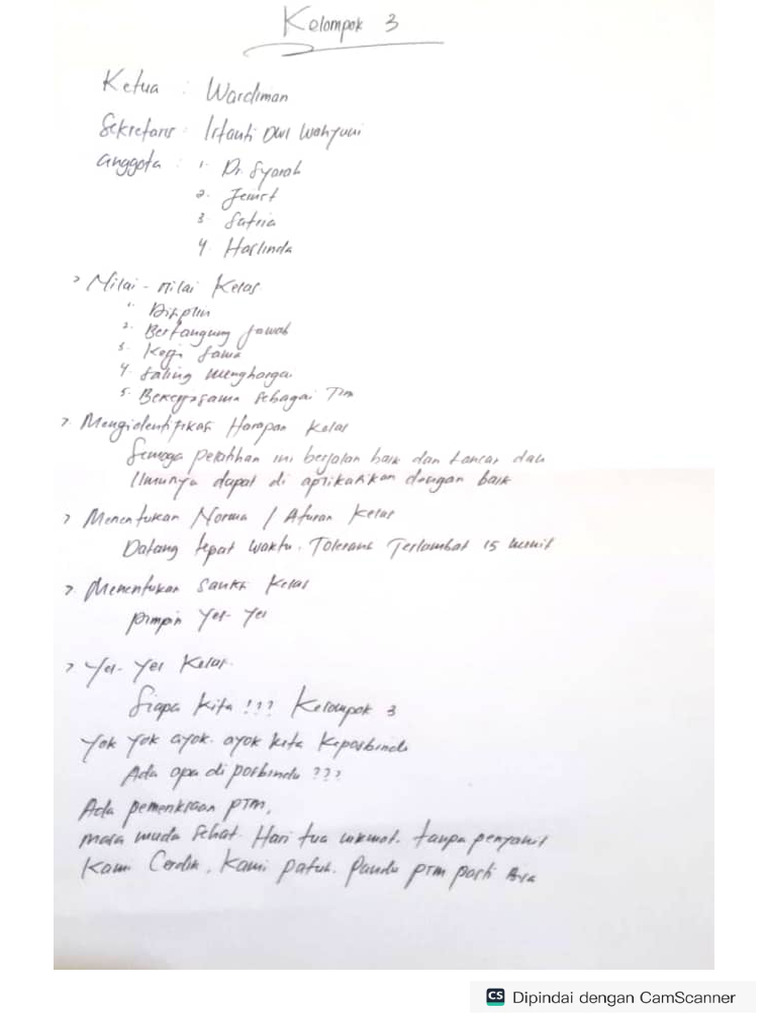 Kelompok 3
Ketua : Wardiman
Sekretaris : Irfanti Dwi Wahyuni
Anggota : 1. Dr. Syarah
2.
3. Satria
4. Haslinda
> Nilai - nilai Kelas
1. Disiplin
2. Bertangung jawab
3. Kerja sama
4. Saling menghargai
5. Bekerjasama sebagai Tim
> Mengidentifikasi Harapan Kelas
Semoga pelatihan ini berjalan baik dan lancar dan
Ilmunya dapat di aplikasikan dengan baik
> Menentukan Norma / Aturan Kelas
Datang tepat waktu. Toleransi Terlambat 15 menit
> Menentukan Sanksi Kelas
pimpin Yel - Yel
> Yel - Yel Kelas.
Siapa Kita !!! Kelompok 3
Yok Yok ayok. ayok kita keposbindu
Ada apa di posbindu ???
Ada pemeriksaan PTM,
masa muda sehat. Hari tua nikmat. tanpa penyakit
Kami Cerdik, Kami patuh. Pandu PTM pasti Bisa
CS Dipindai dengan CamScanner